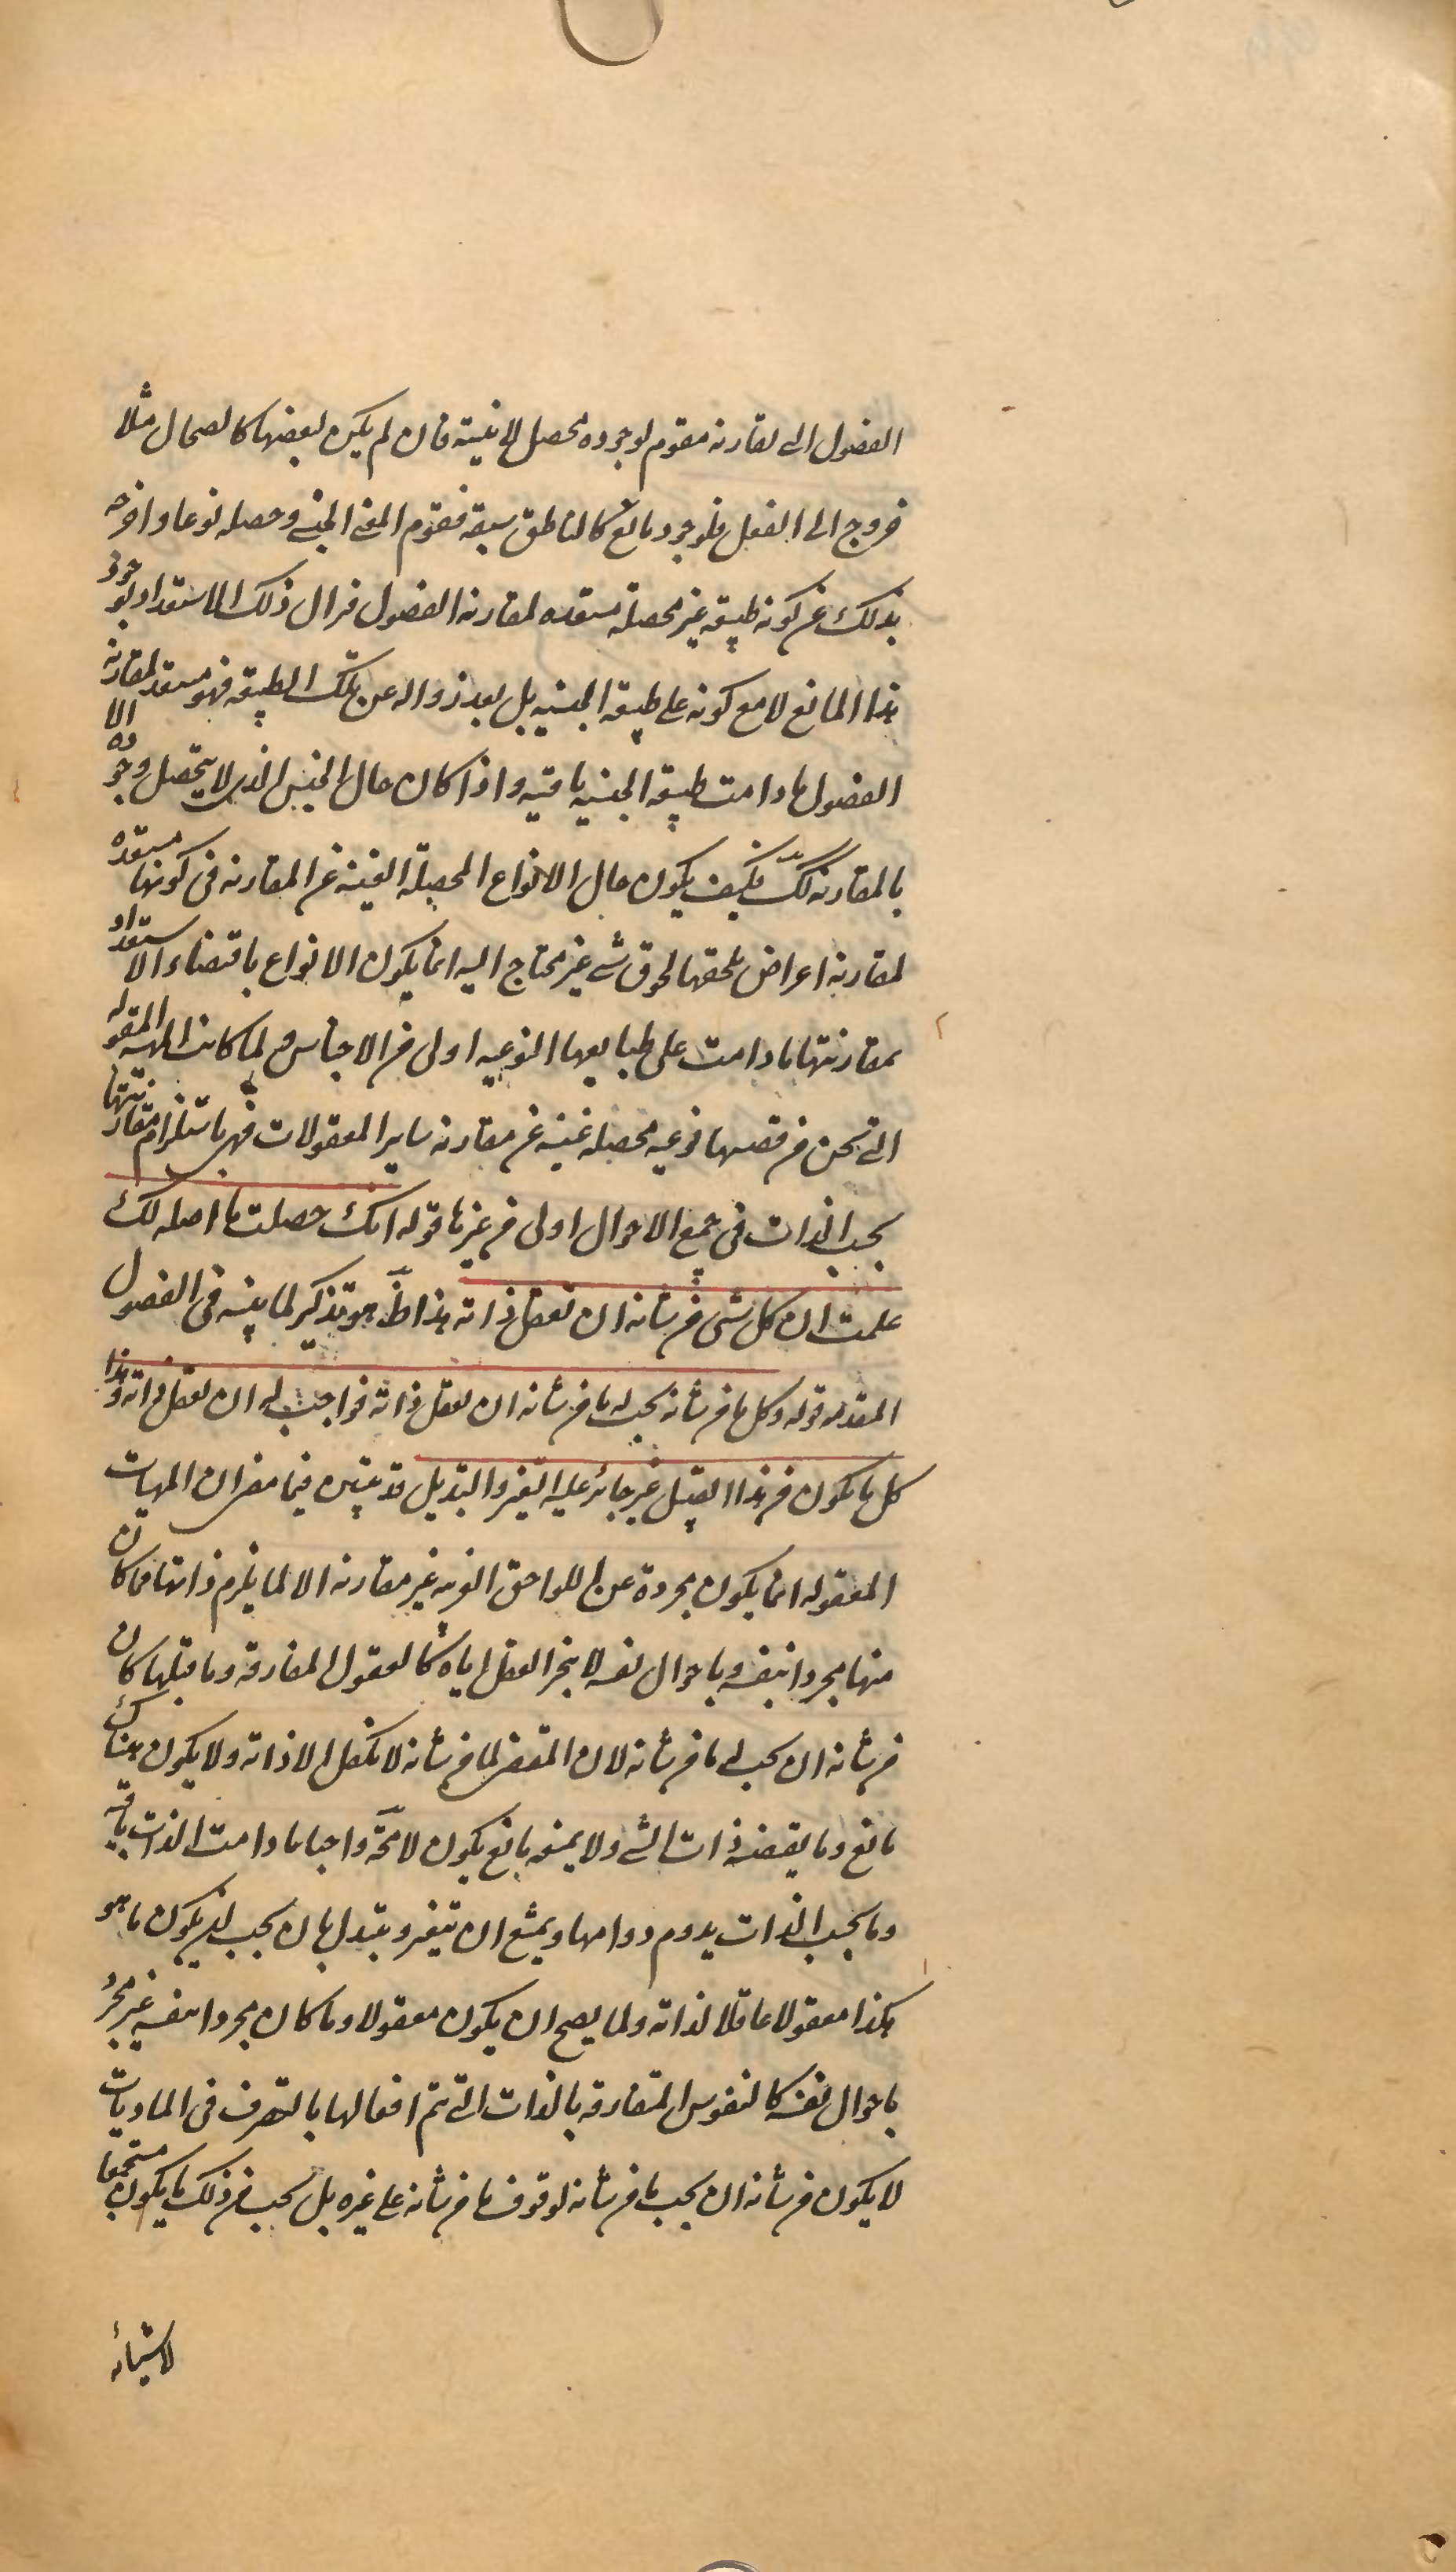 الفصول التى تقارنه مقوم لوجوده محصل لانيته فان لم يكن بعضها كالصهال مثلا
خروج الى الفعل فلوجود مانع كالناطق سبقه فقوم المعنى الجنسى وحصله نوعا واخرجه
بذلك عن كونه طبيعة غير محصلة مستعده لمقارنة الفصول فزال ذلك الاستعداد لوجود
هذا المانع لا مع كونه على طبيعة الجنسية بل بعد زواله عن تلك الطبيعة فهو مستعد لمقارنة
الفصول ما دامت طبيعة الجنسية باقية واذا كان حال الجنس الذى لا يتحصل وجوده الا
بالمقارنة كك فكيف يكون حال الانواع المحصلة الغنية عن المقارنة فى كونها مستعده
لمقارنة اعراض تلحقها لحوق شىء غير محتاج اليه انما يكون الانواع باقتضاء الاستعداد
بمقارنتها ما دامت على طبايعها النوعية اولى من الاجناس ولما كانت المهية المعقوله
التى نحن فى قصها نوعية محصلة غنية عن مقارنة ساير المعقولات فهى باستلزام مقارنتها
بحسب الذات فى جميع الاحوال اولى من غيرها قوله انك حصلت ما اصله لك
علمت ان كل شىء من شانه ان تعقل ذاته هذا ظ هو تذكير لما بينه فى الفصول
المقدمه قوله وكل ما من شانه يجب له ما من شانه ان يعقل ذاته فواجب له ان يعقل ذاته وهذا
كل ما يكون من هذا القبيل غير جائز عليه التغير والتبديل قد تبين فيما مضى ان المهيات
المعقوله انما يكون مجردة عن اللواحق الغريبه غير مقارنه الا لما يلزم ذاتها فما كان
منها مجردا بنفسه وباحوال نفسه لا بتجر العقل اياه كالعقول المفارقة وما قبلها كان
من شانه ان يجب له ما من شانه لان المقتضى لما من شانه لا يكون الا ذاته ولا يكون هناك
مانع وما يقتضيه ذات الشىء ولا يمنعه مانع يكون لا محة واجبا ما دامت الذات باقيه
وما يجب الذات يدوم دوامها ويمتنع ان يتغير ويتبدل بان يجب لمن يكون ما هو
هكذا معقولا عاقلا لذاته ولما يصح ان يكون معقولا وما كان مجردا بنفسه غير مجرد
باحوال نفسه كالنفوس المفارقه بالذات التى تتم افعالها بالتصرف فى الماديات
لا يكون من شانه ان يجب ما من شانه لوقوف ما من شانه على غيره بل يجب من ذلك ما يكون مستجمعا